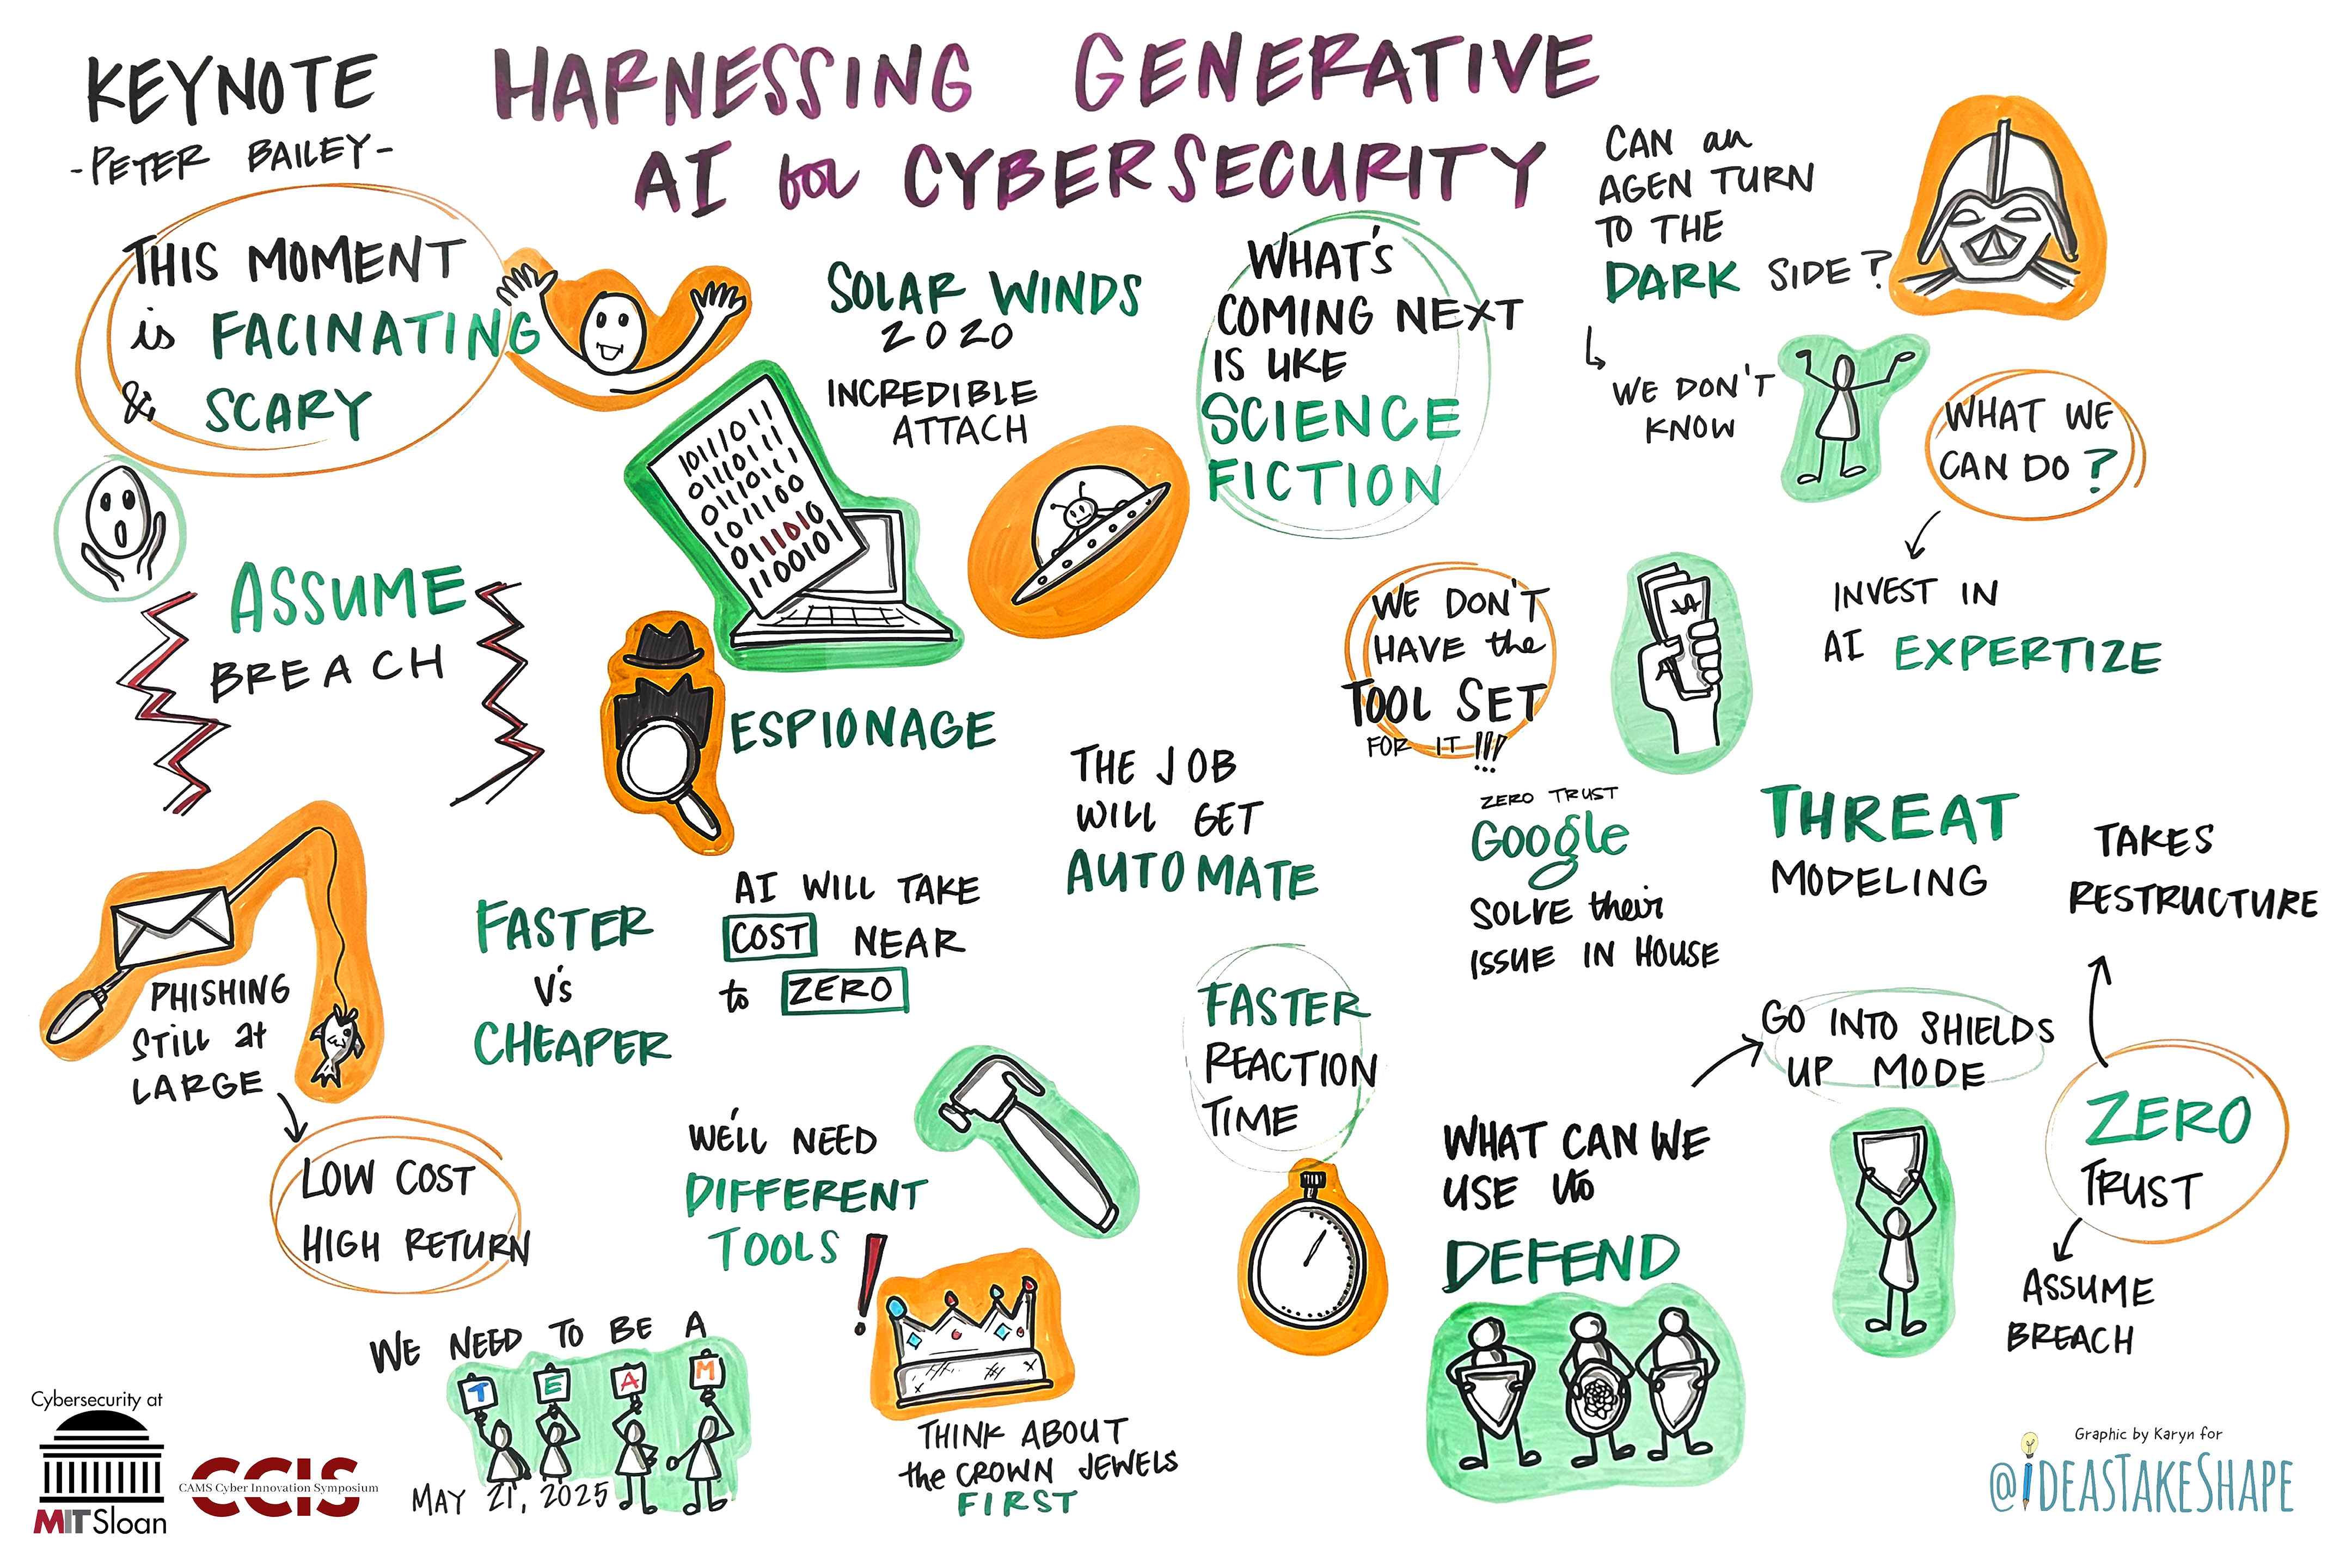 KEYNOTE
-PETER BAILEY-
HARNESSING GENERATIVE
AI for CYBERSECURITY
THIS MOMENT
is FACINATING
& SCARY
SOLAR WINDS
2020
INCREDIBLE
ATTACH
10111011
01110111
01110111
01011100
01110100
1100101
WHAT'S
COMING NEXT
IS LIKE
SCIENCE
FICTION
CAN an
AGEN TURN
TO THE
DARK SIDE?
WE DON'T
KNOW
WHAT WE
CAN DO?
INVEST IN
AI EXPERTIZE
ASSUME
BREACH
ESPIONAGE
WE DON'T
HAVE the
TOOL SET
FOR IT !!!
$
THE JOB
WILL GET
AUTOMATE
ZERO TRUST
Google
SOLVE their
ISSUE IN HOUSE
THREAT
MODELING
TAKES
RESTRUCTURE
PHISHING
STILL at
LARGE
LOW COST
HIGH RETURN
FASTER
V's
CHEAPER
AI WILL TAKE
COST NEAR
to ZERO
WE'LL NEED
DIFFERENT
TOOLS !
FASTER
REACTION
TIME
WHAT CAN WE
USE to
DEFEND
GO INTO SHIELDS
UP MODE
ZERO
TRUST
ASSUME
BREACH
WE NEED TO BE A
T E A M
MAY 21, 2025
THINK ABOUT
the CROWN JEWELS
FIRST
Cybersecurity at
MIT Sloan
CCIS
CAMS Cyber Innovation Symposium
Graphic by Karyn for
@iDEASTAKESHAPE